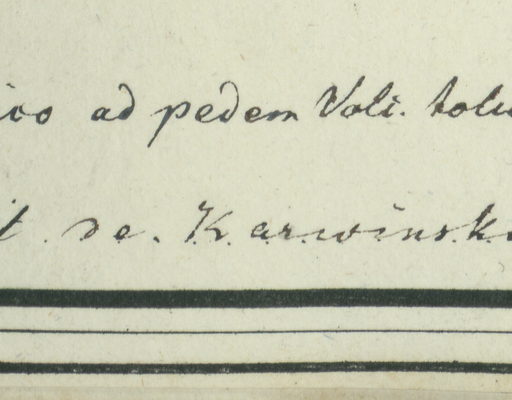 ico ad pedem Volc. tolu
t. de. Karwinski